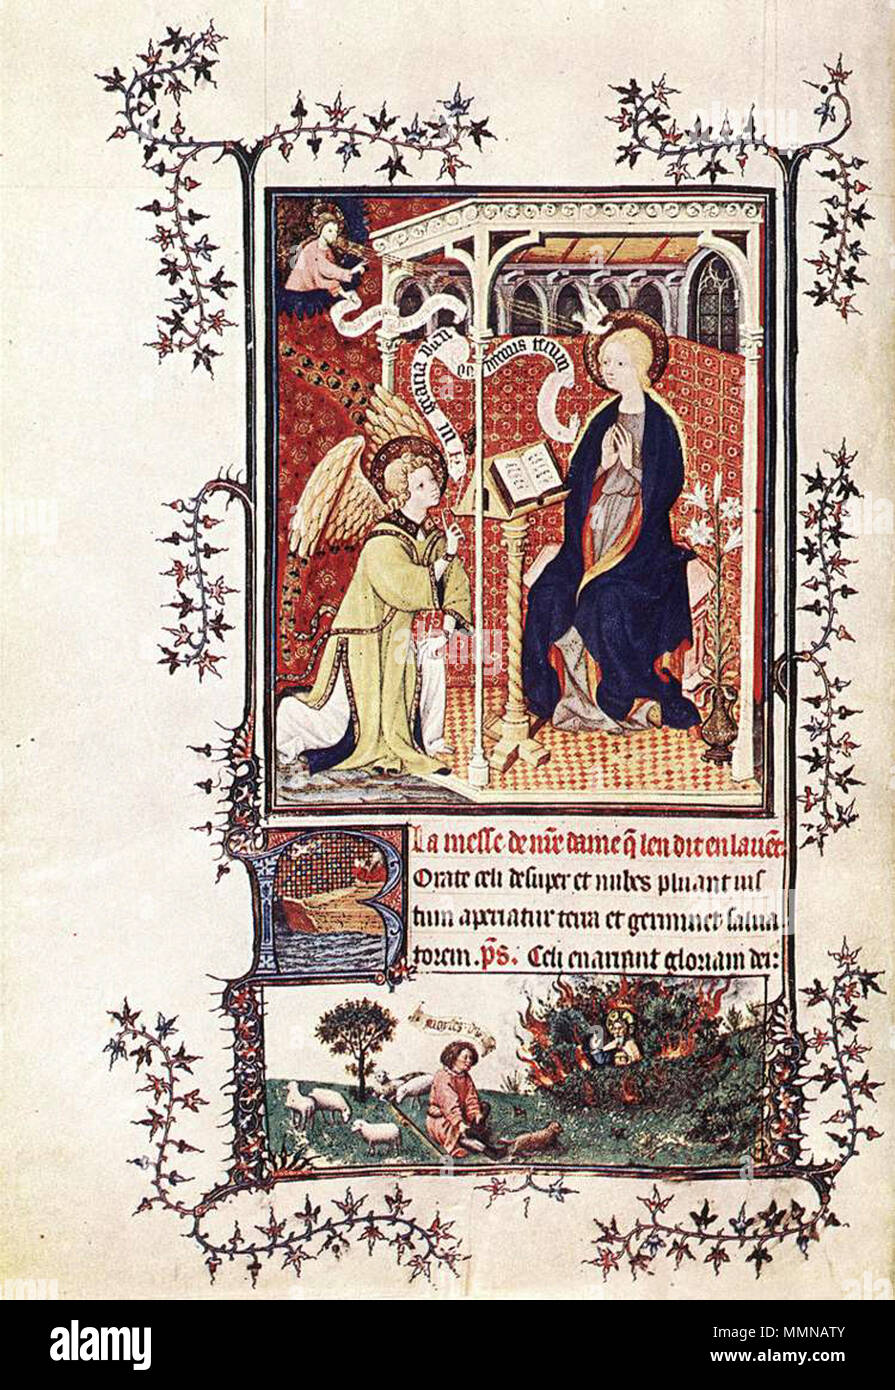 gracia
tecum
La messe de nr̃e dame q̃ len dit en lauẽt.
Rorate celi desuper et nubes pluant ius
tum aperiatur terra et germinet salua
torem. p̃s. Celi enarrant gloriam dei:
alamy
Image ID: MMNATY
www.alamy.com